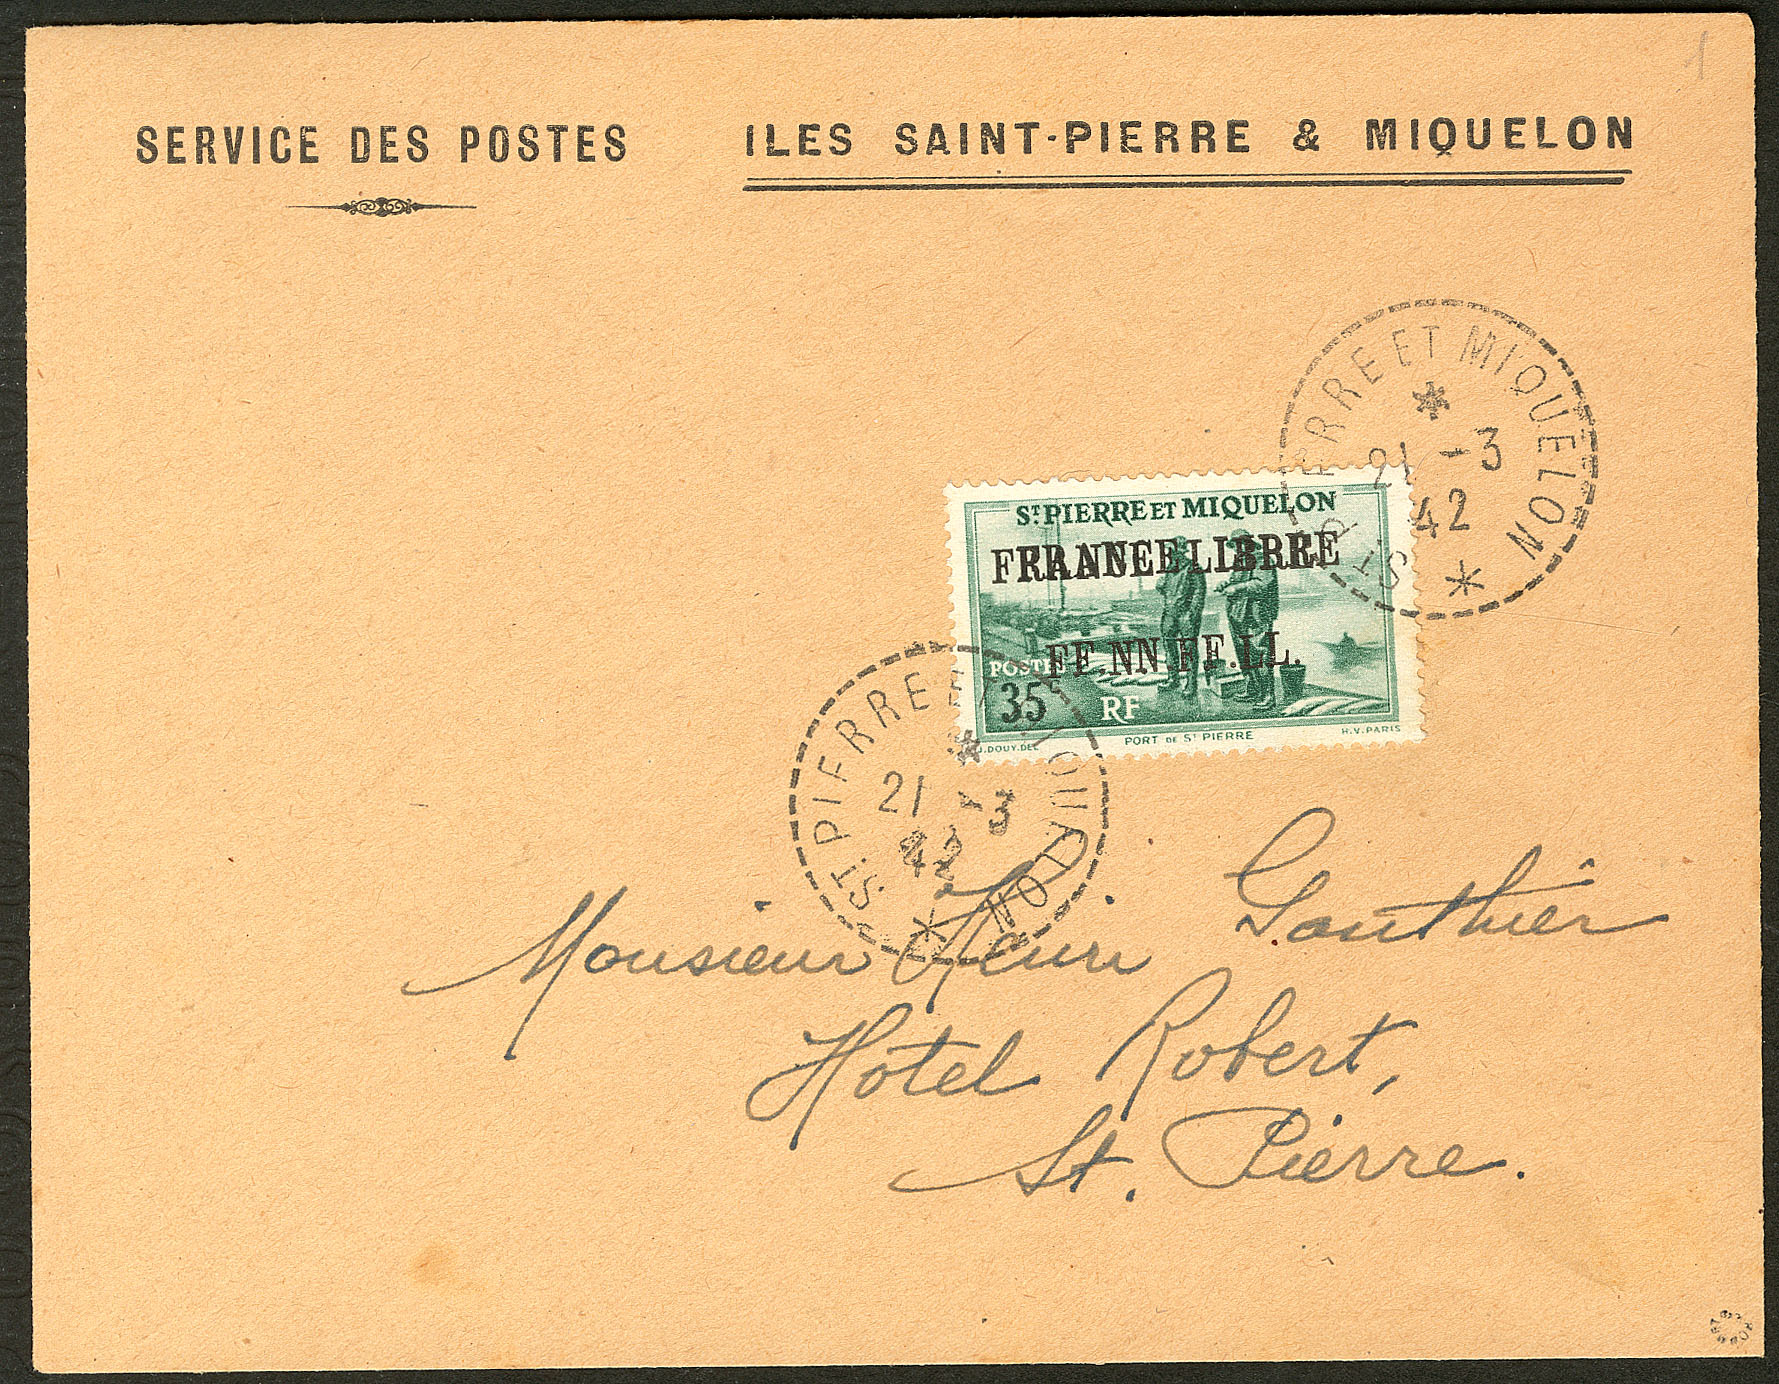 1
SERVICE DES POSTES
ILES SAINT-PIERRE & MIQUELON
ST PIERRE ET MIQUELON
21 -3
42
ST PIERRE ET MIQUELON
FRANCE LIBRE
F.N.F.L.
POSTES
35c
RF
J.DOUY.DEL
PORT DE ST PIERRE
H.V.PARIS
ST PIERRE E QUELON
21 -3
42
Monsieur Henri Gauthier
Hôtel Robert,
St. Pierre.